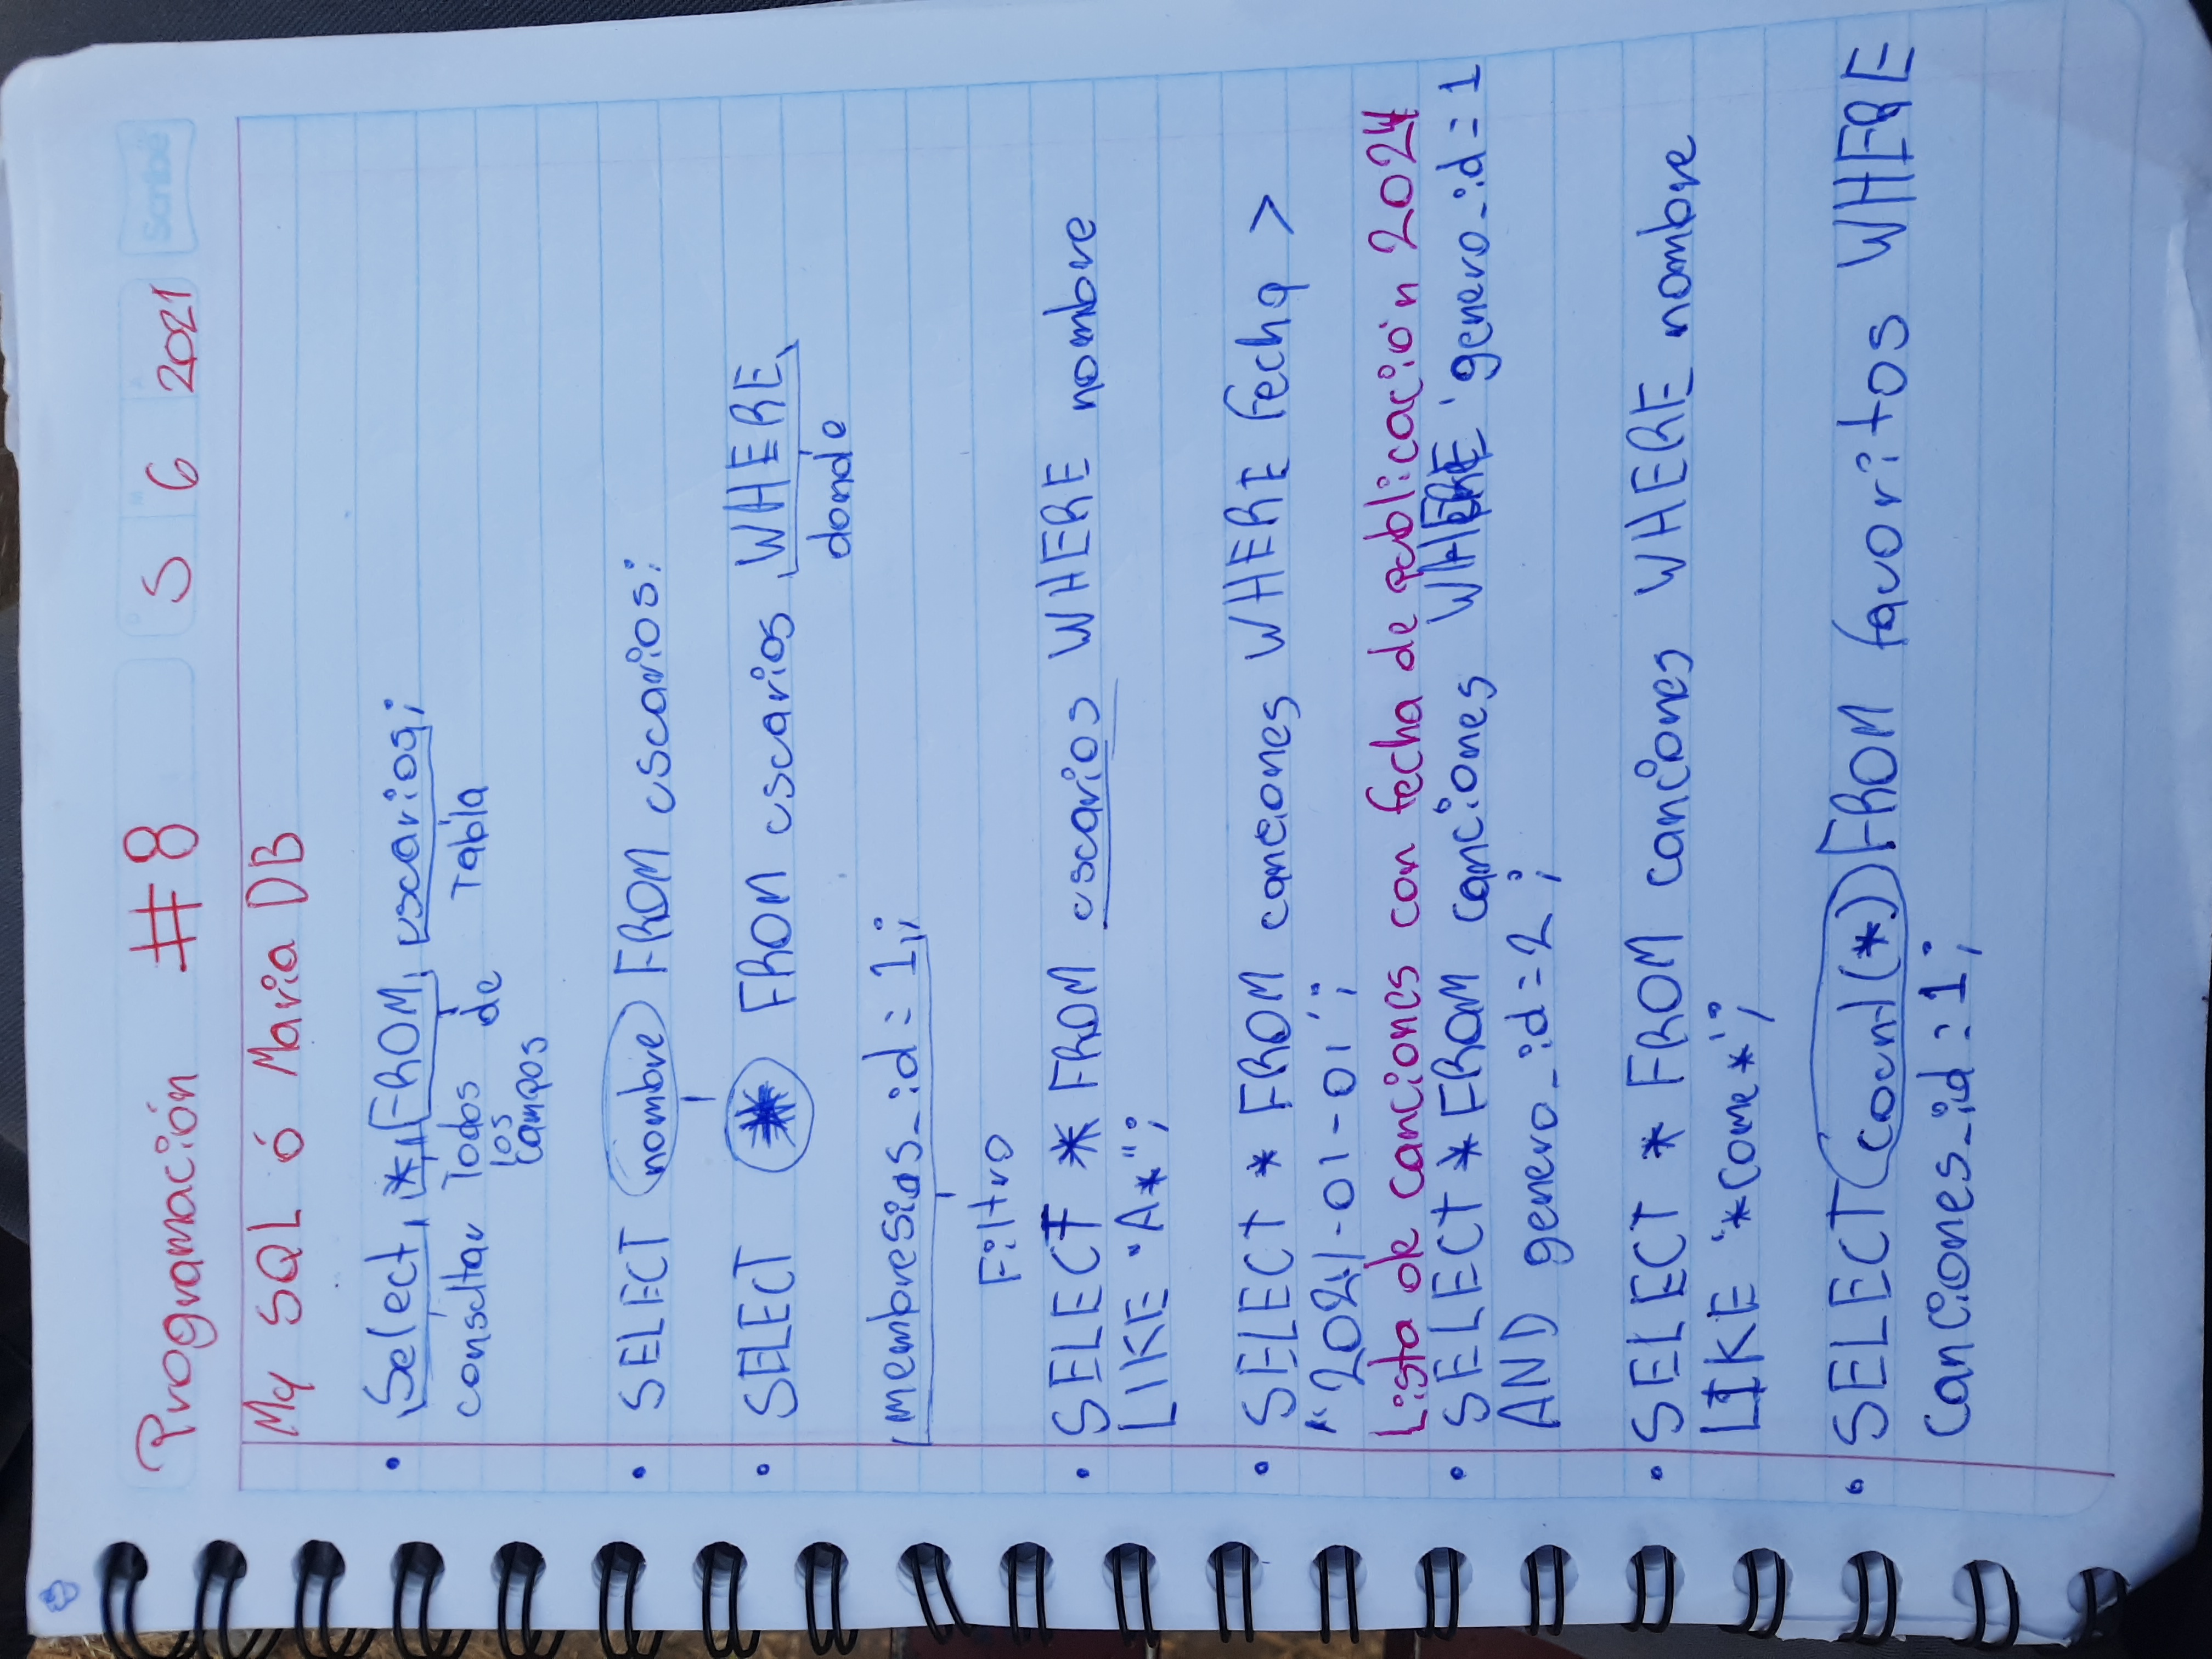 Programación #8 5 6 2021
Scribe
My SQL ó Maria DB
• Select * FROM usuarios;
consultar Todos de Tabla
los
campos
• SELECT nombre FROM usuarios;
• SELECT * FROM usuarios WHERE
donde
membresias_id = 1;
Filtro
• SELECT * FROM usuarios WHERE nombre
LIKE "A*";
• SELECT * FROM canciones WHERE fecha >
"2021-01-01";
Lista de canciones con fecha de publicación
• SELECT * FROM canciones WHERE genero_id = 1
AND genero_id = 2;
• SELECT * FROM canciones WHERE nombre
LIKE '*come*';
• SELECT count(*) FROM favoritos WHERE
canciones_id = 1;